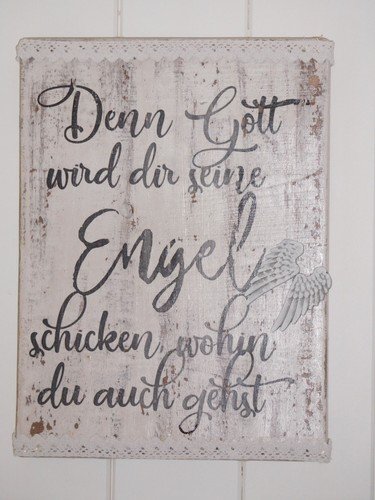 Denn Gott
wird dir seine
Engel
schicken, wohin
du auch gehst